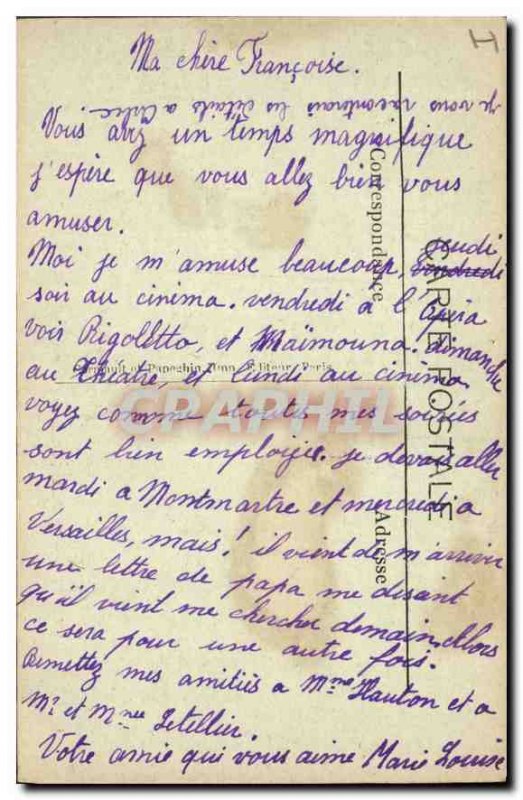 Ma chère Françoise.
je vous raconterais les détails a
Vous avez un temps magnifique
j'espère que vous allez bien vous
amuser.
Moi je m'amuse beaucoup, vendredi jeudi
soir au cinéma. vendredi a l'Opéra
voir Rigoletto, et Maïmouna. dimanche
au théâtre, et lundi au cinéma
voyez comme toutes mes soirées
sont bien employées. je devais aller
mardi a Montmartre et mercredi a
Versailles, mais! il vient de m'arriver
une lettre de papa me disant
qu'il vient me chercher demain. Alors
ce sera pour une autre fois.
Remettez mes amitiés a Mme Hauton et a
Mr et Mme Letellier.
Votre amie qui vous aime Marie Louise
CARTE POSTALE
Correspondance
Adresse
Papeghin, Editeurs Paris
CPAPHIL